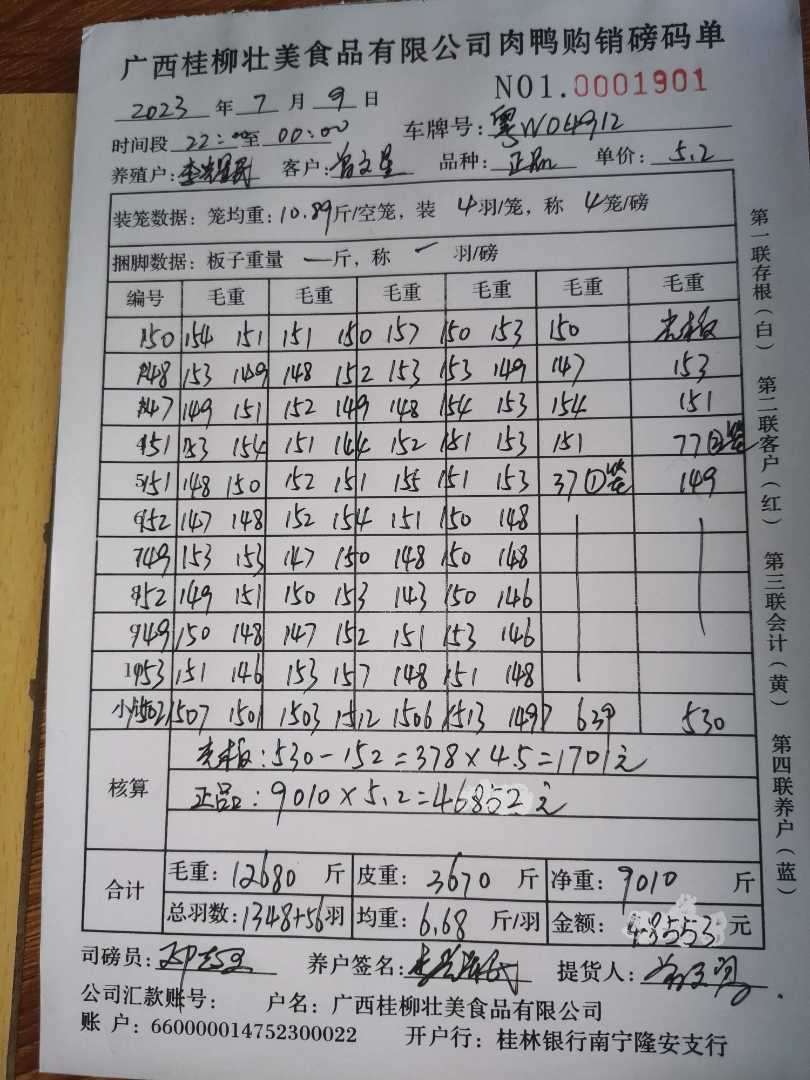 广西桂柳壮美食品有限公司肉鸭购销磅码单
NO1.0001901
2023 年 7 月 9 日
时间段 22:00至 00:00 车牌号:粤W04912
养殖户: 客户: 曾文星 品种: 正品 单价: 5.2
装笼数据: 笼均重:10.89斤/空笼,装 4羽/笼,称 4笼/磅
捆脚数据: 板子重量 一斤,称 一 羽/磅
编号 毛重 毛重 毛重 毛重 毛重 毛重
150 154 151 151 150 157 150 153 150
148 153 149 148 152 153 153 149 147 153
147 149 151 152 149 148 154 153 154 151
4151 153 154 151 144 152 151 153 151 77②笼
5151 148 150 152 151 155 151 153 37①笼 149
6152 147 148 152 154 151 150 148
7149 153 153 147 150 148 150 148
8152 149 151 150 153 143 150 146
9149 150 148 147 152 151 153 146
10153 151 146 153 157 148 151 148
小计1502 1507 1501 1503 1512 1506 1513 1497 639 530
核算
530-152=378×4.5=1701元
正品:9010×5.2=46852元
合计
毛重: 12680 斤 皮重: 3670 斤 净重: 9010 斤
总羽数:1348+56羽 均重: 6.68 斤/羽 金额: 48553 元
司磅员: 养户签名: 提货人:
公司汇款账号: 户名:广西桂柳壮美食品有限公司
账 户: 660000014752300022 开户行:桂林银行南宁隆安支行
第一联存根(白) 第二联客户(红) 第三联会计(黄) 第四联养户(蓝)